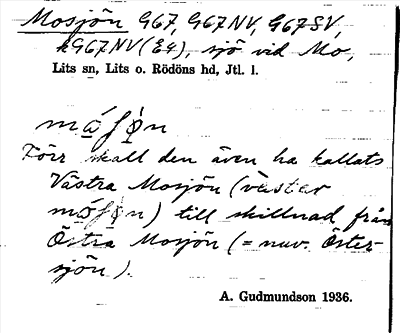 Mosjön G67, G67NV, G67SV,
kG67NV(E4), sjö vid Mo,
Lits sn, Lits o. Rödöns hd, Jtl. l.
Förr skall den även ha kallats
Västra Mosjön (väster
till skillnad från
Östra Mosjön (= nuv. Öster-
sjön).
A. Gudmundson 1936.